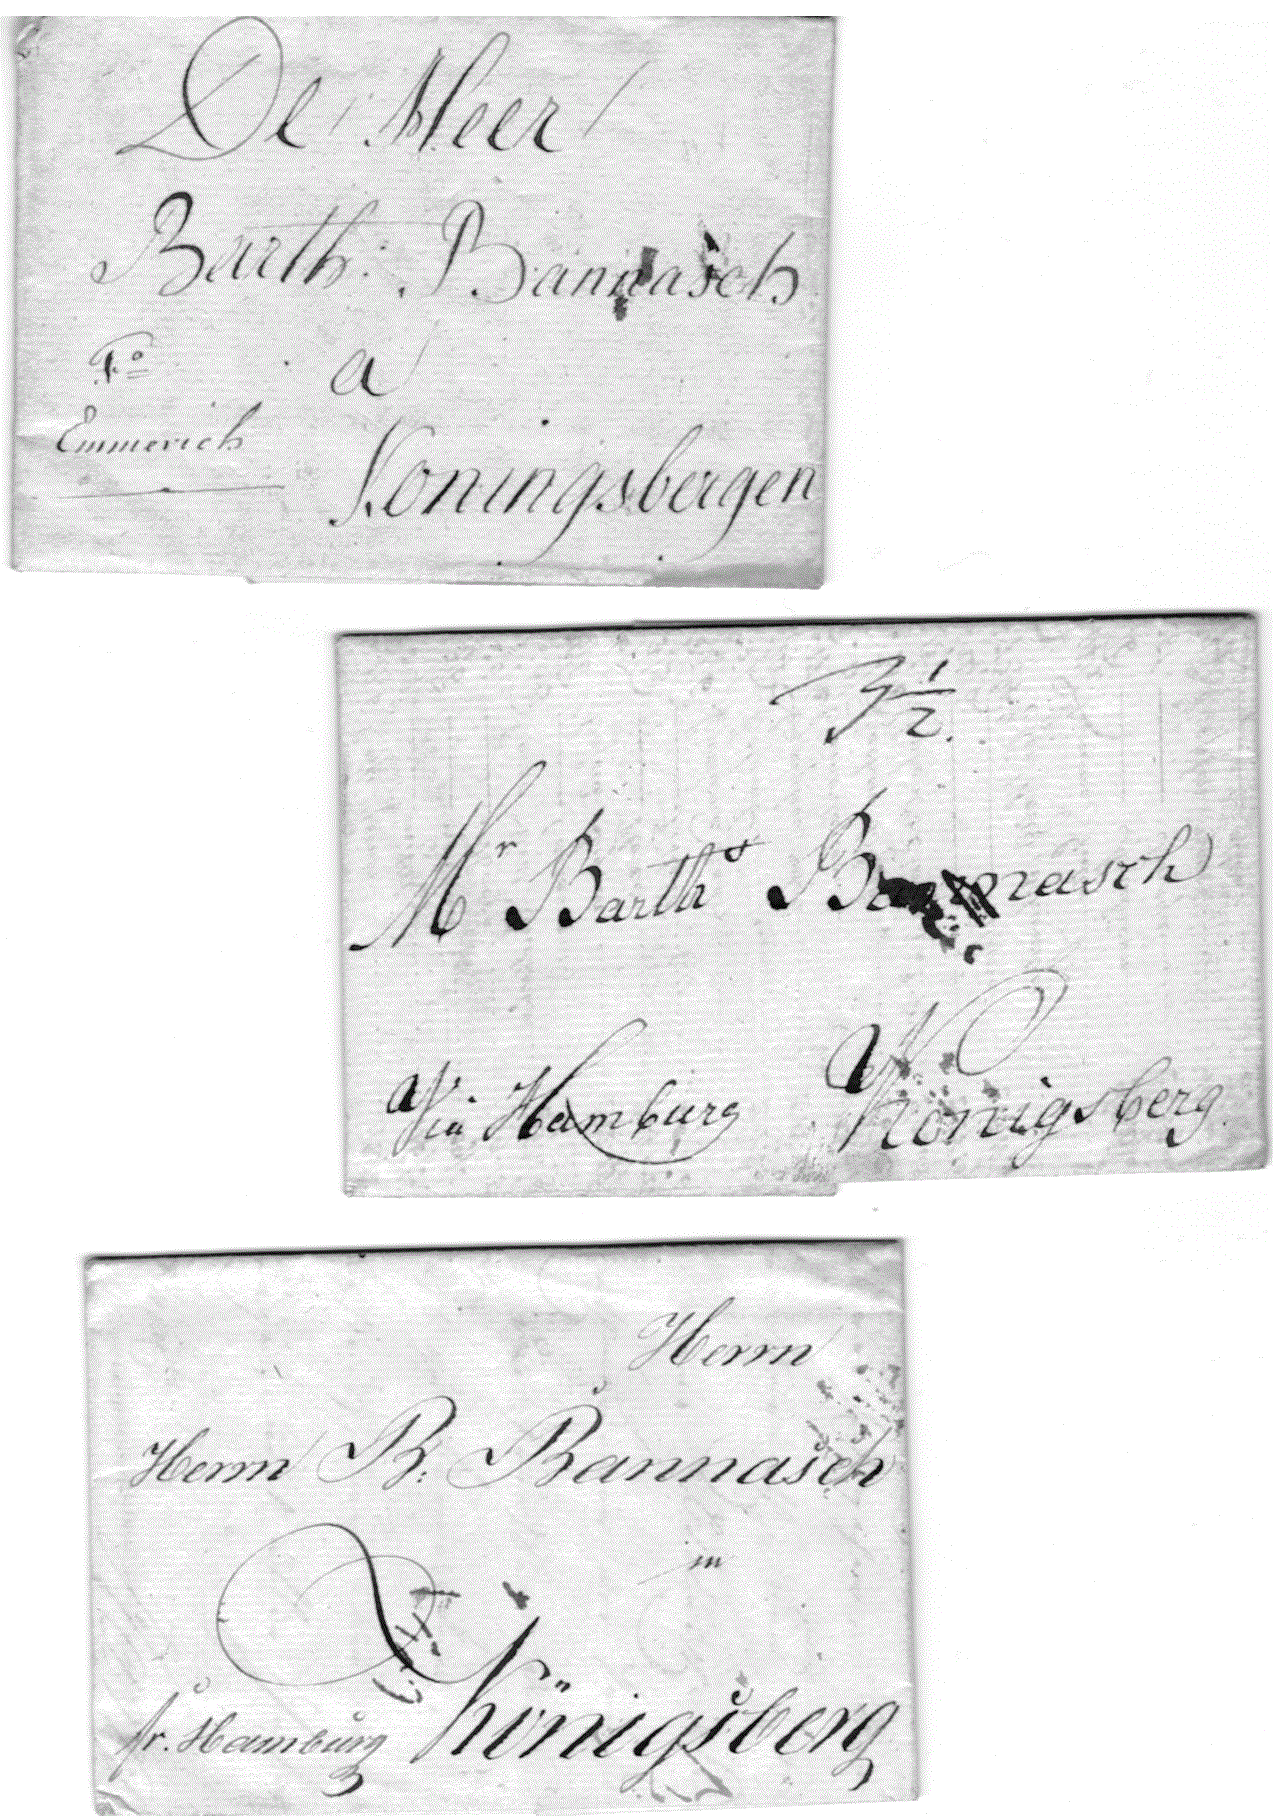 De Heer
Barth: Bannasch
Fo a
Emmerich
Koningsbergen
3 1/2.
Mr Barths Bannasch
Via Hamburg Königsberg.
Herrn
Herrn B: Bannasch
in
fr. Hamburg Königsberg